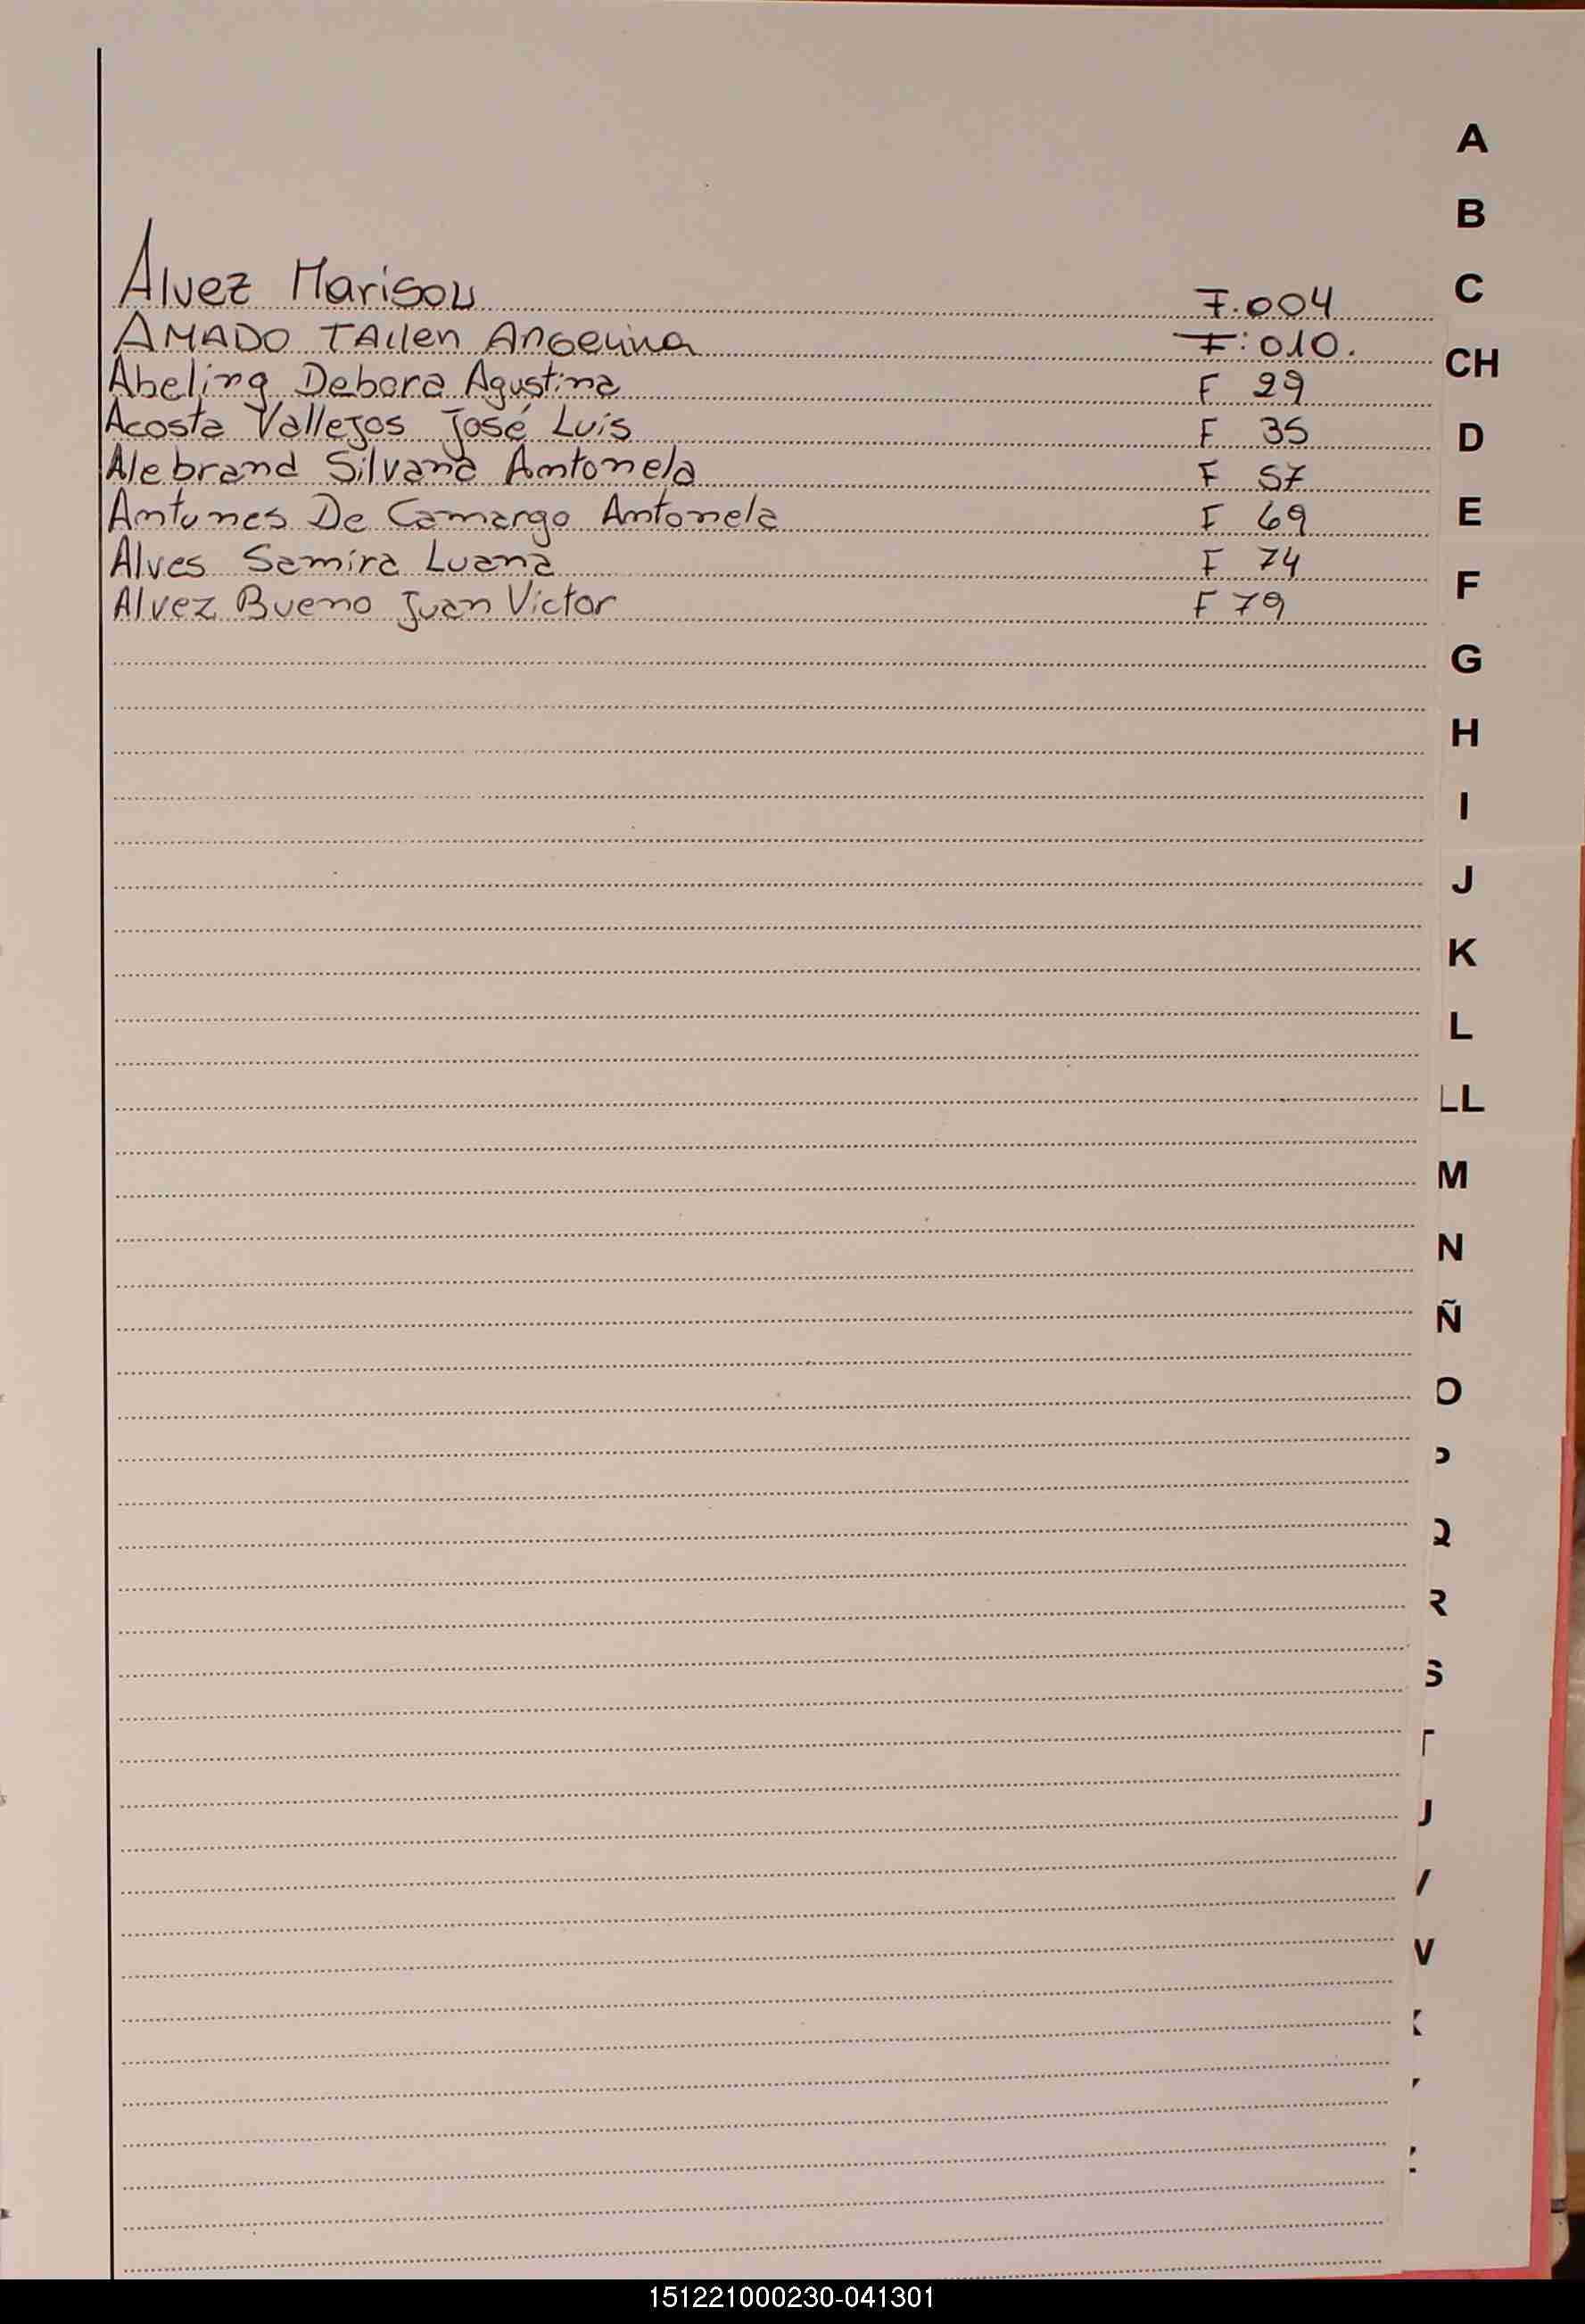 A
B
C
Alvez Marisol F.004
AMADO TAilen Angelina F:010.
CH
Abeling Debora Agustina F 29
Acosta Vallejos José Luis F 35
D
Alebrand Silvana Antonela F 57
Antunes De Camargo Antonela F 69
E
Alves Samira Luana F 74
F
Alvez Bueno Juan Victor F 79
G
H
I
J
K
L
LL
M
N
Ñ
O
P
Q
R
S
T
U
V
W
X
Y
Z
151221000230-041301